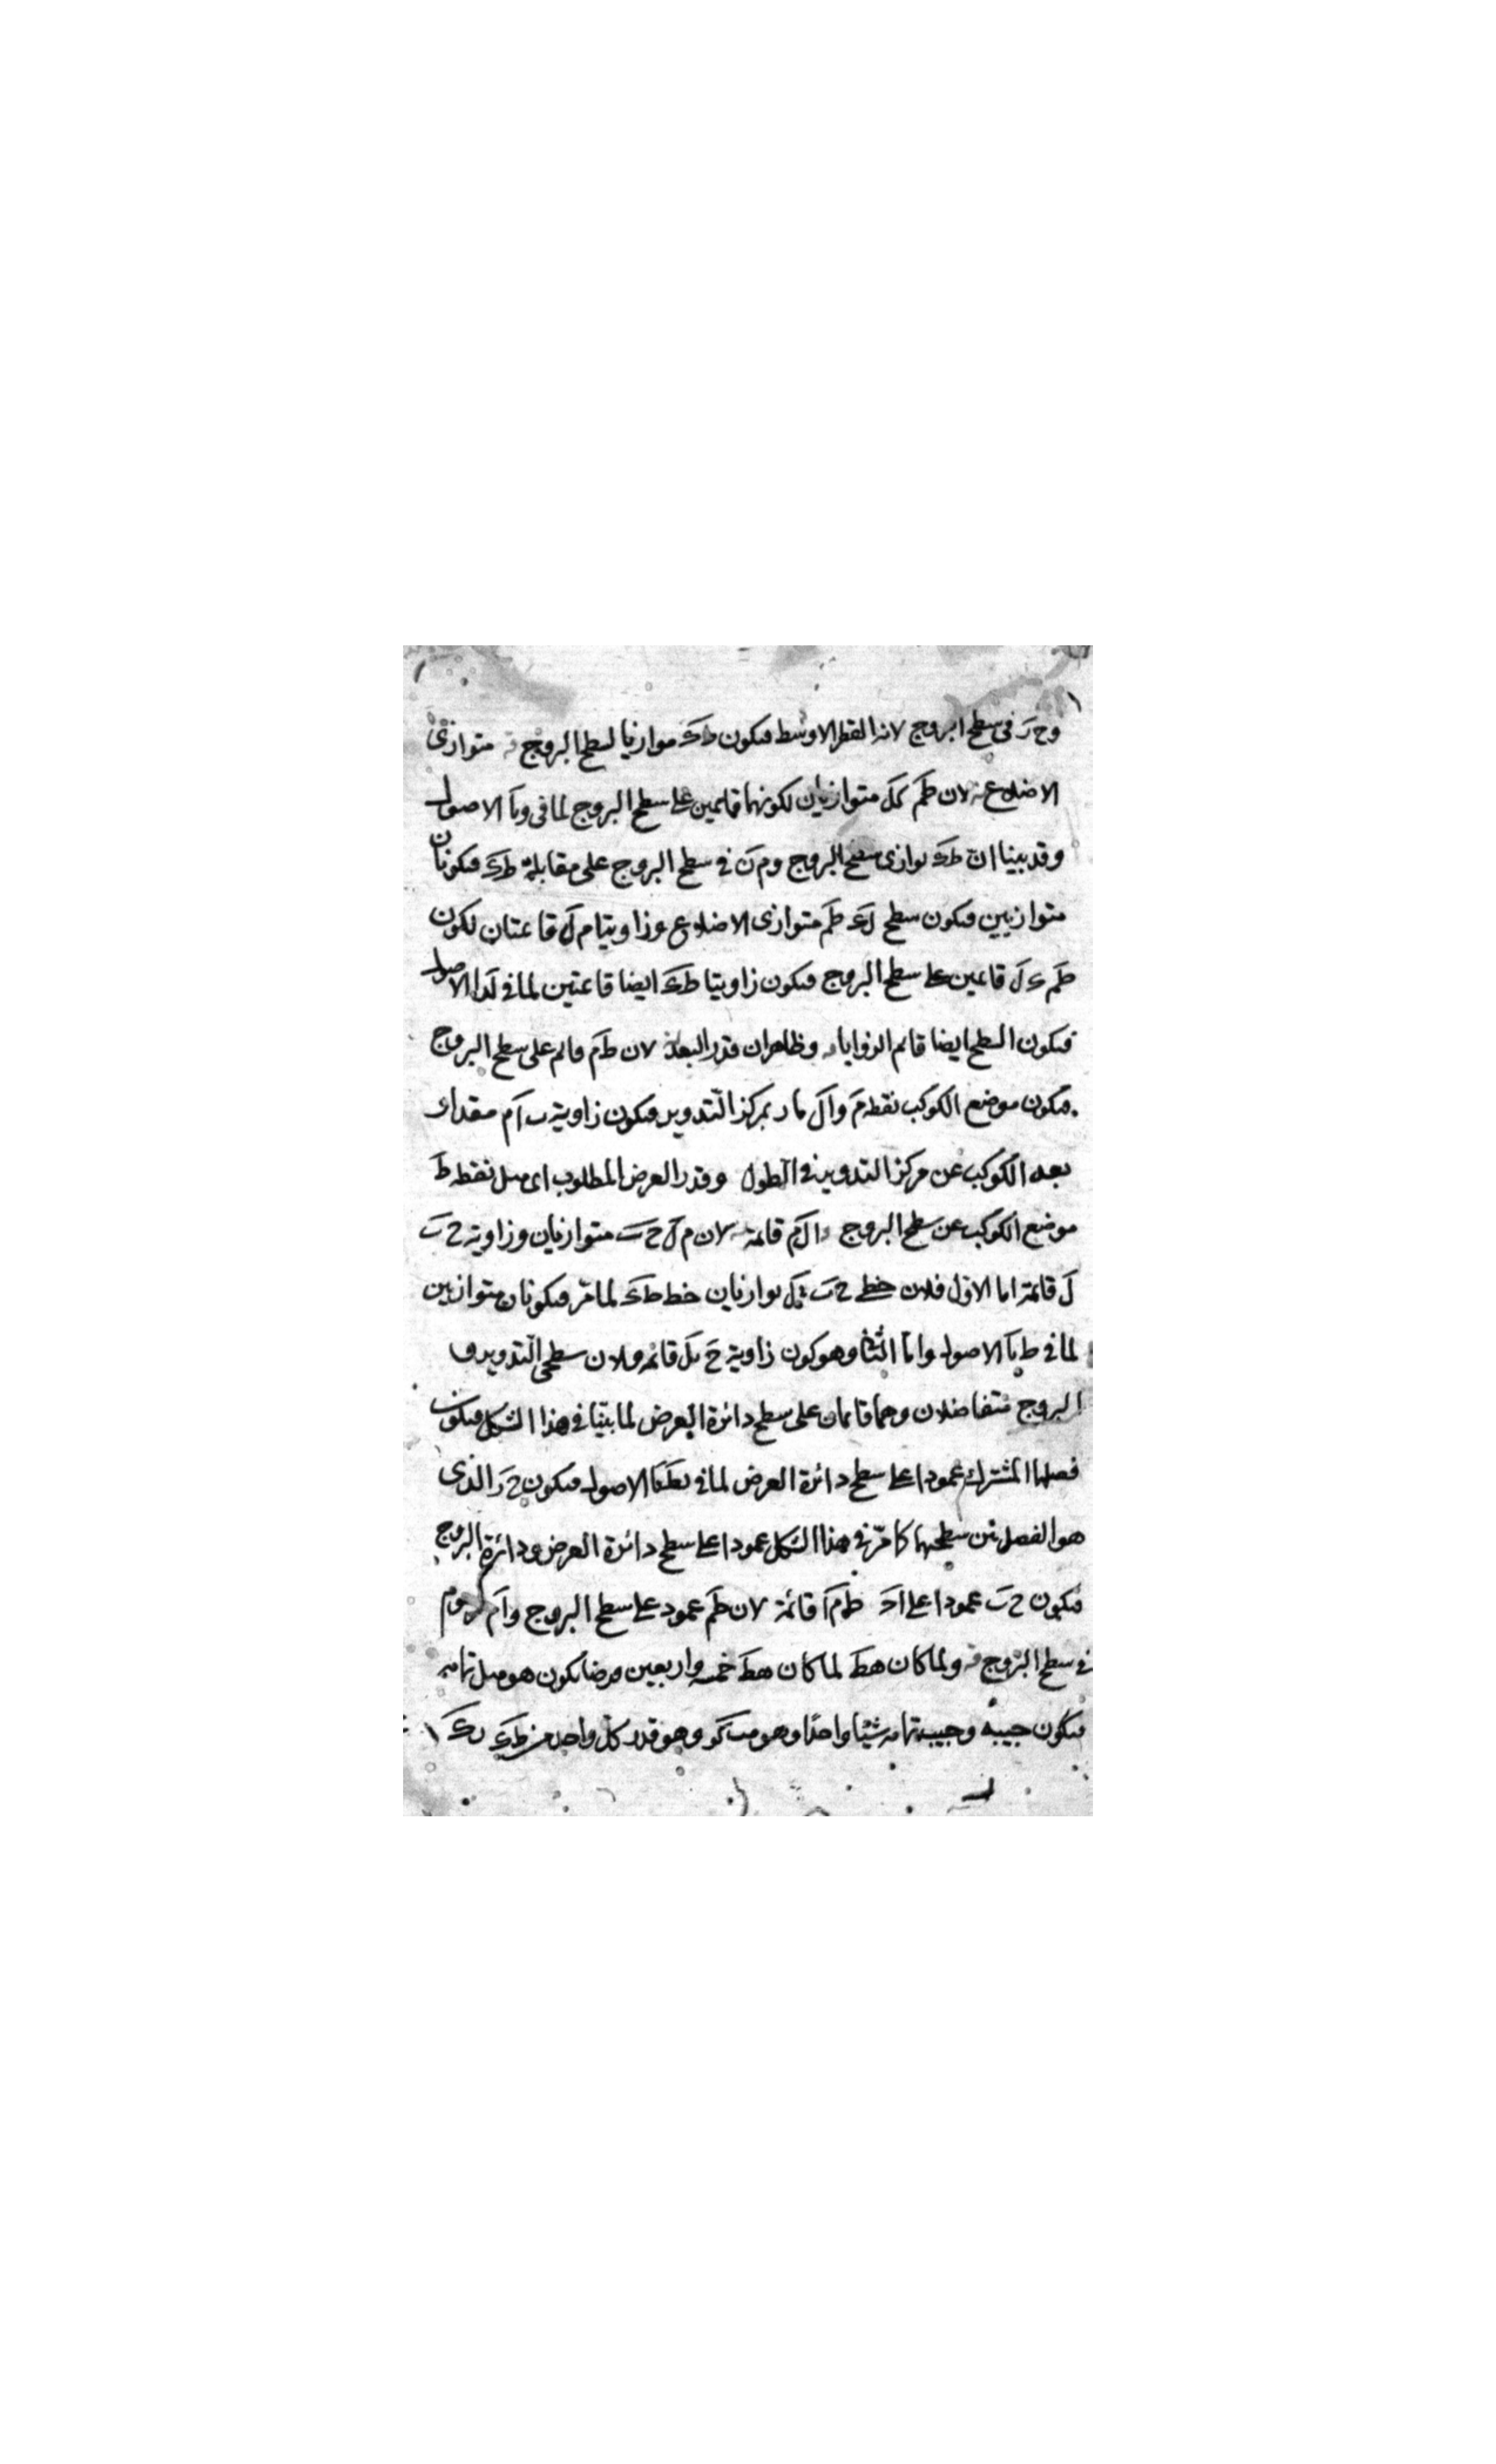 وح ر فى سطح البروج لانه القطر الاوسط فيكون ط ك موازيا لسطح البروج قه متوازى
الاضلاع نه لان طم كل متوازيان لكونهما قايمين على سطح البروج لما فى و يا الاصول
وقد بينا ان ط ك يوازى سطح البروج و م ن فى سطح البروج على مقابلة ط ك فيكونان
متوازيين فيكون سطح ل ك ط م متوازى الاضلاع وزاويتا م ل قائمتان لكون
طم ك ل قائمين على سطح البروج فيكون زاويتا ط ك ايضا قائمتين لما فى لد ا الاصول
فيكون السطح ايضا قائم الزوايا وظاهر ان قدر البعد لان ط م قائم على سطح البروج
فيكون موضع الكوكب نقطه م و ا ل مار بمركز التدوير فيكون زاوية ب ا م مقدار
بعد الكوكب عن مركز التدوير فى الطول وقدر العرض المطلوب اى ميل نقطه ط
موضع الكوكب عن سطح البروج ا ل م قائمة لان م ل ح ب متوازيان وزاوية ح ب
ل قائمة اما الاول فلان خطى ح ب م ل يوازيان خط ط ك لما مر فيكونان متوازيين
لما فى ط يا الاصول واما الثانى وهو كون زاوية ح ب ل قائمه فلان سطحى التدوير و
البروج متفاضلان وهما قائمان على سطح دائرة العرض لما بينا فى هذا الشكل فيكون
فصلهما المشترك عمودا على سطح دائرة العرض لما فى يط يا الاصول فيكون ح ر الذى
هو الفصل بين سطحيهما كما مر فى هذا الشكل عمودا على سطح دائرة العرض ودائرة البروج
فيكون ح ب عمودا على ا ك ط م ا قائمة لان طم عمود على سطح البروج و ا م
فى سطح البروج قه ولما كان هط لما كان هط خمسه واربعين فرضا يكون هو مثل تمامه
فيكون جيبه وجيب تمامه شيئا واحدا وهو مب كو وهو قدر كل واحد من ط ك ب ك